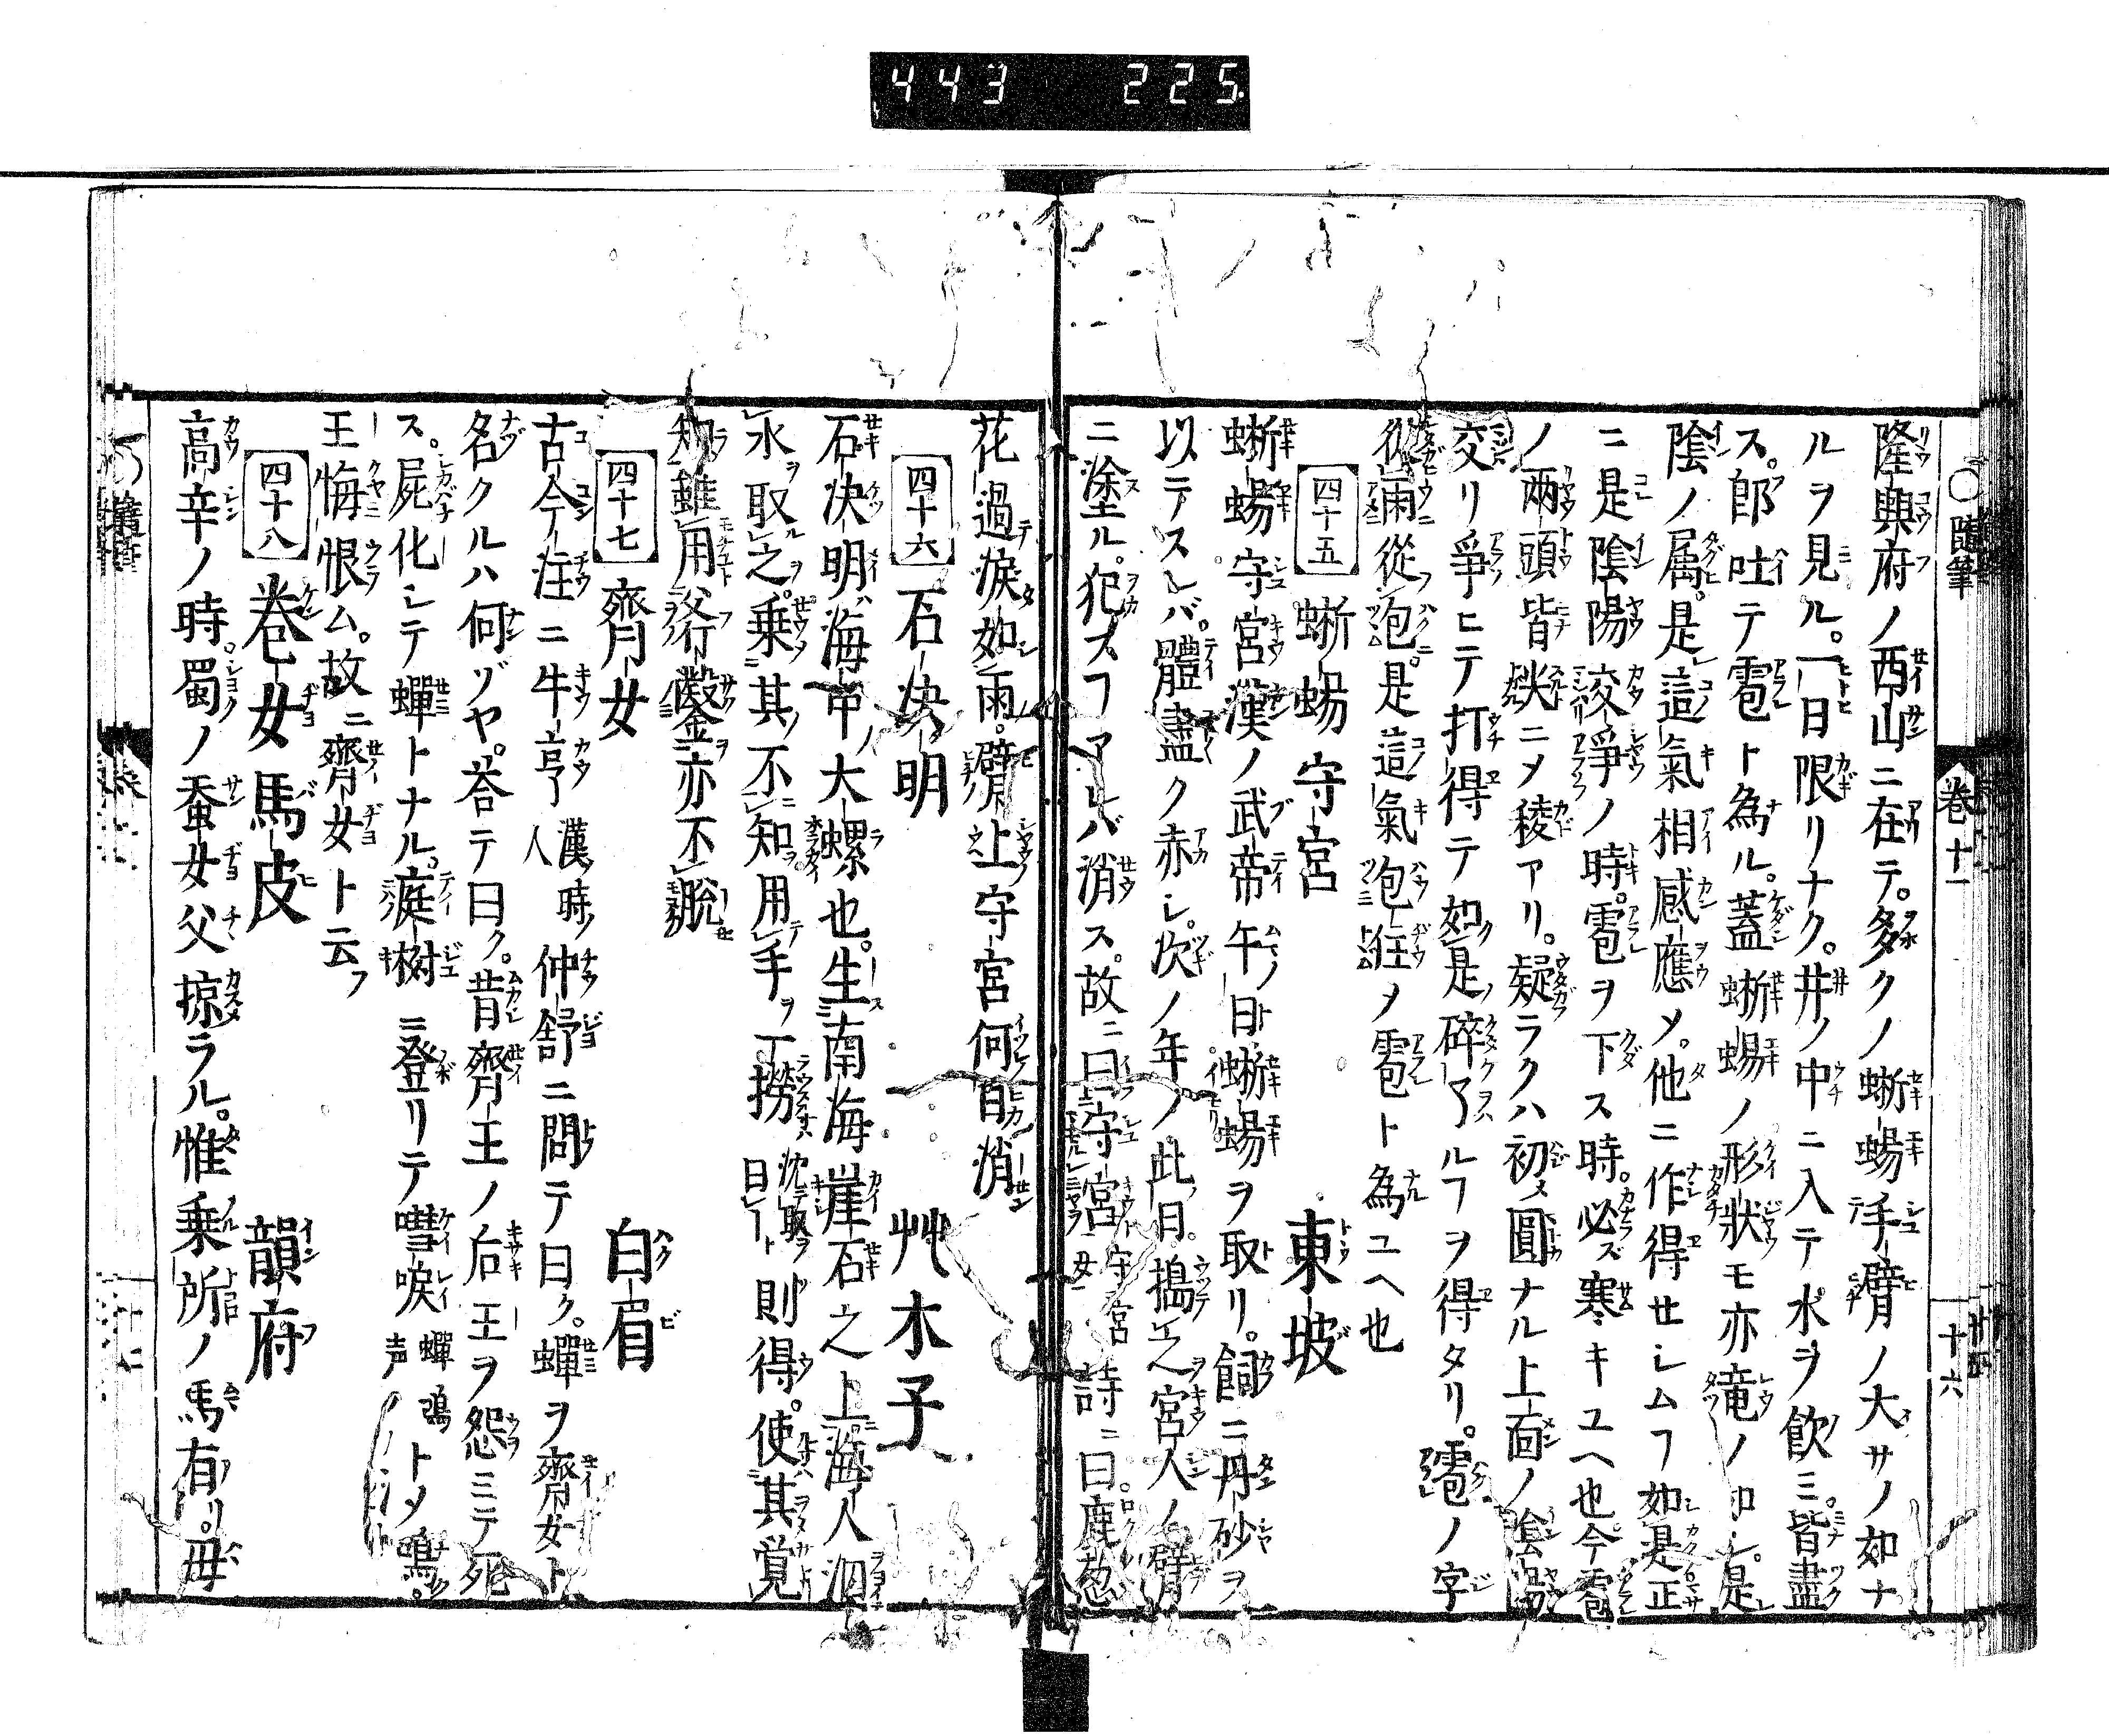 443 225
〇隨筆 卷十一 十六
隆興府ノ西山ニ在テ。多クノ蜥蜴手臂ノ大サノ如ナ
ルヲ見ル。一日限リナク。井ノ中ニ入テ水ヲ飲ミ。皆盡
ス。郎吐テ雹ト為ル。蓋蜥蜴ノ形状モ亦竜ノ如シ。是
陰ノ属。是這氣相感應メ。他ニ作得セシムフ如是正
ニ是陰陽交爭ノ時。雹ヲ下ス時。必ズ寒キユヘ也今雹
ノ兩頭皆尖ニメ稜アリ。疑ラクハ初メ圓ナル上面ノ陰陽
交リ爭ヒテ打得テ如是碎了ルフヲ得タリ。雹ノ字
從雨從包。是這氣包在メ雹ト為ユヘ也
四十五 蜥蜴守宮 東坡
蜥蜴守宮漢ノ武帝午ノ日。蜥蜴ヲ取リ。飼ニ丹砂ヲ
以テスレバ。體盡ク赤シ。次ノ年ノ此ノ日。搗之宮人ノ臂
ニ塗ル。犯スフアレバ消ス。故ニ曰守宮 守宮詩ニ曰鹿葱
花過涙如雨。臂上守宮何自消
四十六 石决明 艸木子
石决明ハ海中ノ大螺也。生南海崖石之上海人泅
水ヲ取之。乗其ノ不知用手ヲ一撈 則得。使其覚
知雖用斧鑿ヲ亦不脫
四十七 齊女 白眉
古今注ニ牛亨 漢時ノ人 仲舒ニ問テ曰ク。蟬ヲ齊女ト
名クルハ何ゾヤ。荅テ曰ク。昔齊王ノ后王ヲ怨ミテ死
ス。屍化シテ蟬トナル。庭樹ニ登リテ嘒唳 蟬鳴声 トメ鳴。
王悔恨ム。故ニ齊女ト云フ
四十八 巻女馬皮 韻府
高辛ノ時。蜀ノ蚕女父掠ラル。惟乗所ノ馬有リ。毋